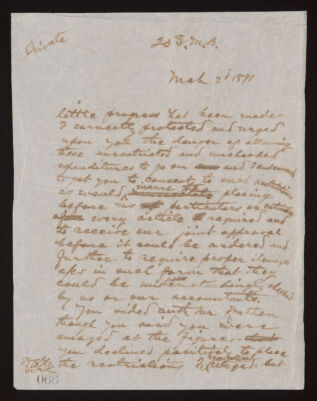 Private
20 S. M. B.
Mch 2d 1891
little progress has been made
I earnestly protested and urged
upon you the danger of allowing
these unrestricted and unchecked
expenditures to go on and I endeavored
to get you to consent to such
as would placing
before us particulars
every article required and
to receive our joint approval
before it could be ordered and
further to require proper
also in such form that they
could be understandingly checked
by us or our accountants.
You sided with Mr Hutton
though you said you were
amazed at the figures
you declined positively to place
the restrictions I but
066